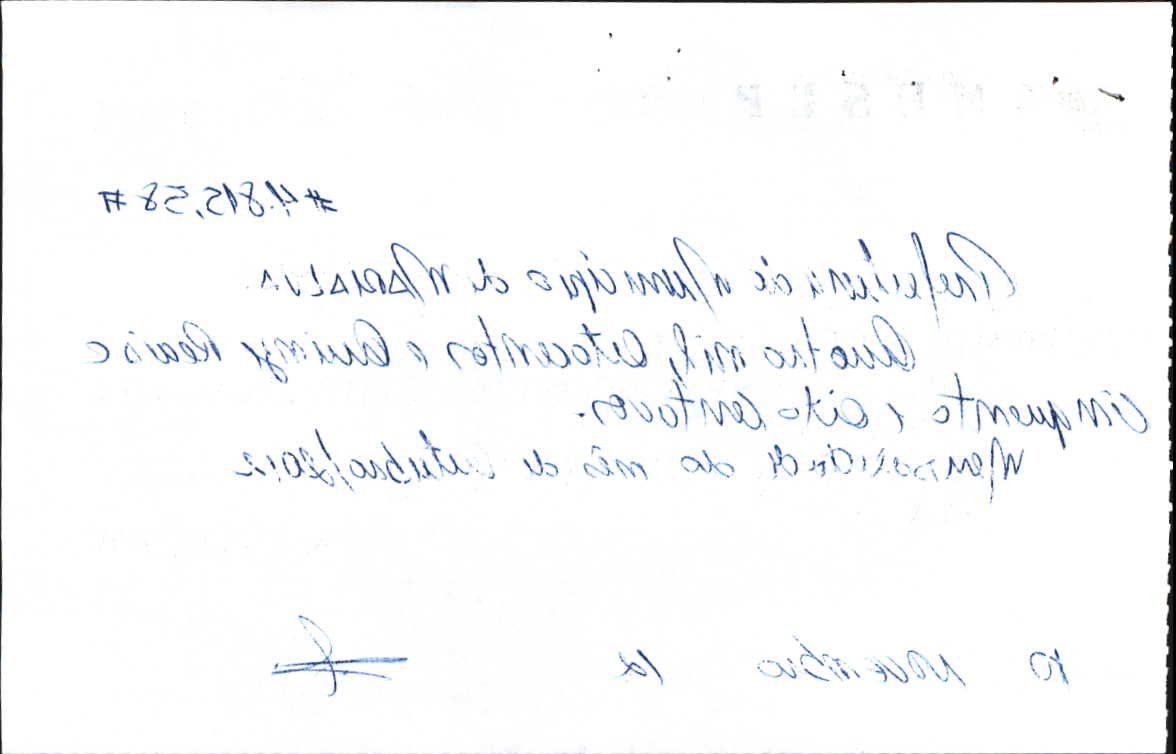 #4.815,58#
Prefeitura do Município de MARIALVA
Quatro mil, Oitocentos e Quinze Reais e
Cinquenta e Oito Centavos.
Mensalidade do mês de outubro/2012
10 novembro 12